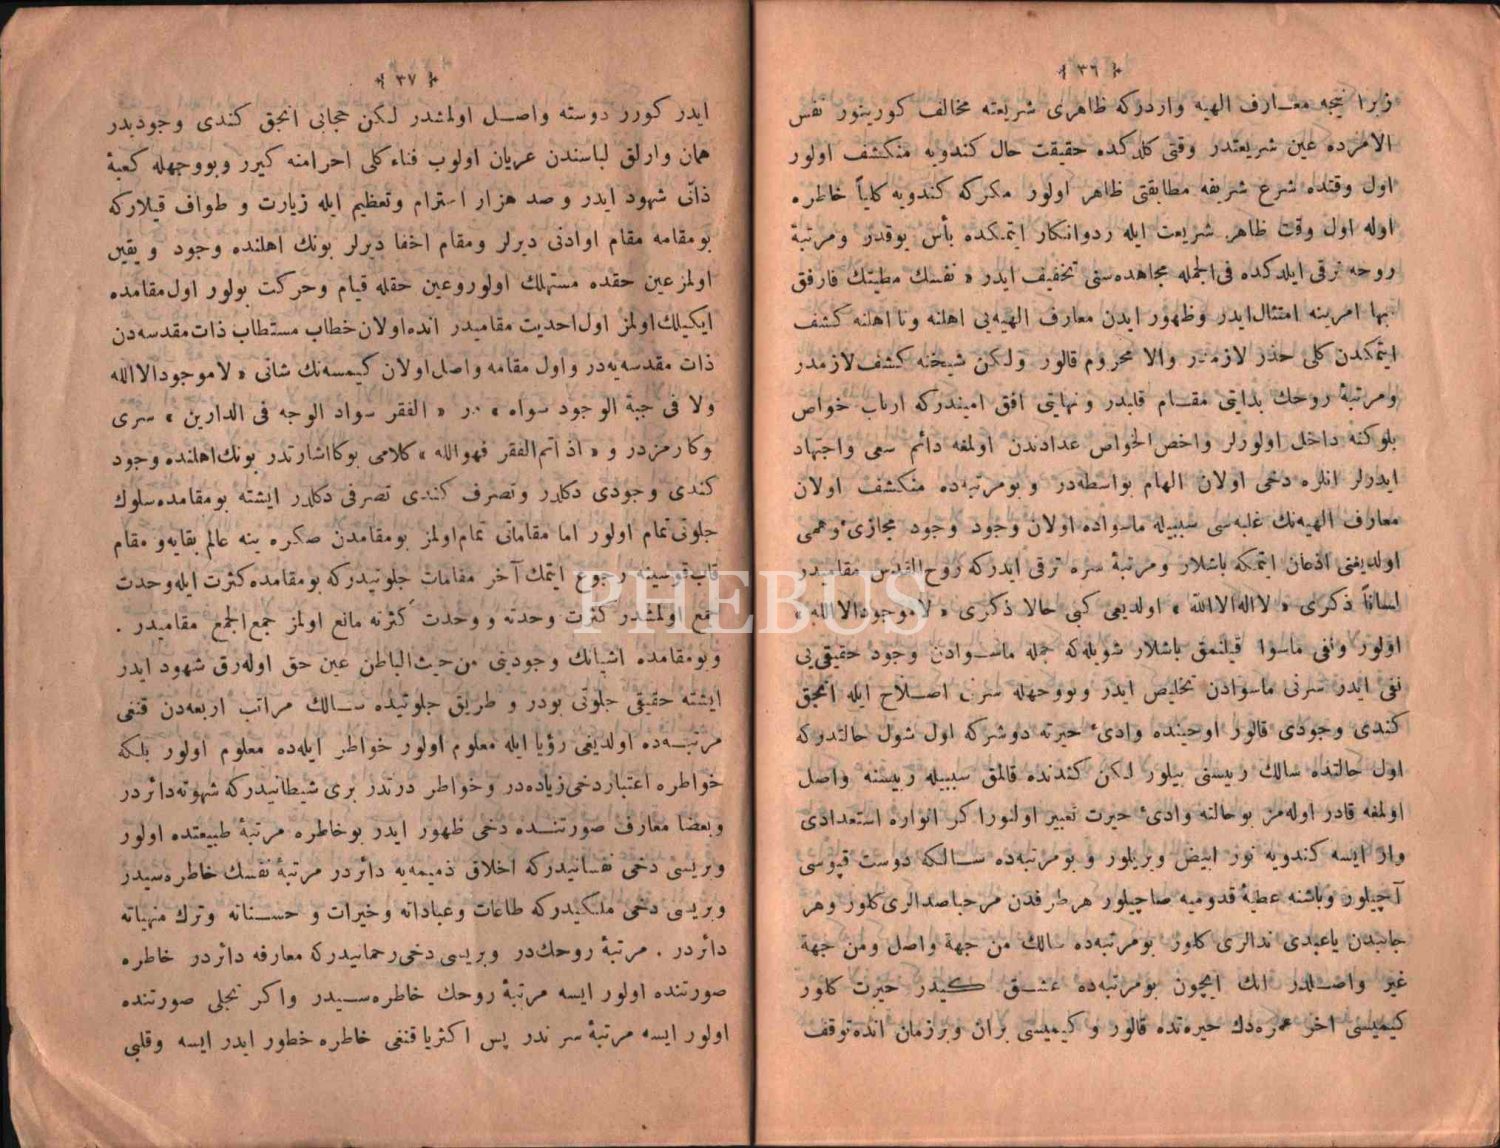 ﴿ ٣٦ ﴾
زيرا نيجه معـارف الهيه واردركه ظاهرى شريعته مخالف كورينور نفس
الامرده عين شريعتدر وقتى كلدكده حقيقت حال كندويه منكشف اولور
اول وقتده شرع شريفه مطابقتى ظاهر اولور مكركه كندويه كلياً خاطره
اوله اول وقت ظاهر شريعت ايله ردوانكار ايتمكده بأس يوقدر ومرتبۀ
روحه ترقى ايلدكده فى الجمله مجاهده‌سنى تخفيف ايدر « نفسك مطيتك فارفق
بها امرينه امتثال ايدر وظهور ايدن معارف الهيه‌يى اهلنه ونا اهلنه كشف
ايتمكدن كلى حذر لازمدر والا محروم قالور ولكن شيخنه كشف لازمدر
ومرتبۀ روحك بدايتى مقـام قلبدر ونهايتى افق اميندركه ارباب خواص
بلوكنه داخل اولورلر واخص الخواص عدادندن اولمغه دائم سعى واجتهاد
ايدرلر انلره دخى اولان الهام بواسطه‌در و بومرتبه‌ده منكشف اولان
معارف الهيه‌نك غلبه‌سى سببيله ماسواده اولان وجود وجود مجازئ وهمى
اولديغنى اذعان ايتمكه باشلار ومرتبۀ سره ترقى ايدركه روح القدس مقاميدر
لساناً ذكرى « لااله الاالله » اولديغى كبى حالا ذكرى « لاموجود الاالله »
اولور ونفى ماسوا قيلنمق باشلار شويله‌كه جمله ماسـوادن وجود حقيقى‌يى
نفى ايدر سرنى ماسوادن تخليص ايدر وبووجهله سرن اصـلاح ايله انجق
كندى وجودى قالور اوحينده وادئ حيرته دوشركه اول شول حالتدركه
اول حالتده سالك ربيسنى بيلور لكن كندنده قالمق سببيله ربيسنه واصل
اولمغه قادر اوله‌مز بوحالته وادئ حيرت تعبير اولنور اكر انواره استعدادى
وار ايسه كندويه نور ابيض ويريلور و بومرتبه‌ده سـالكه دوست قپوسى
آچيلور وباشنه عطيۀ قدوميه صاچيلور هرطرفدن مرحباصدالرى كلور وهر
جانبدن ياعبدى ندالرى كلور بومرتبه‌ده سالك من جهة واصل ومن جهة
غير واصـلدر انك ايچون بومرتبه‌ده عشـق كيدر حيرت كلور
كيميسى اخر عمره‌دك حيره‌تده قالور و كيميسى برآن وبرزمان انده توقف
﴿ ٣٧ ﴾
ايدر كورر دوسته واصـل اولمشدر لكن حجابى انجق كندى وجوديدر
همان وارلق لباسندن عريان اولوب فناء كلى احرامنه كيرر وبووجهله كعبۀ
ذاتى شهود ايدر و صد هزار استرام وتعظيم ايله زيارت و طواف قيلاركه
بومقامه مقام اوادنى ديرلر ومقام اخفا ديرلر بونك اهلنده وجود و يقين
اولمز عين حقده مستهلك اولوروعين حقله قيام وحركت بولور اول مقامده
ايكيلك اولمز اول احديت مقاميدر انده اولان خطاب مستطاب ذات مقدسه‌دن
ذات مقدسه‌يه‌در واول مقامه واصل اولان كيمسه‌نك شانى « لاموجود الاالله
ولا فى جبة الوجود سواه » در « الفقر سواد الوجه فى الدارين » سرى
وكا رمزدر و « اذ اتم الفقر فهوالله » كلامى بوكا اشارتدر بونك اهلنده وجود
كندى وجودى دكلدر وتصرف كندى تصرفى دكلدر ايشته بومقامده سلوك
جلوتى تمام اولور اما مقاماتى تمام اولمز بومقامدن صكره ينه عالم بقايه و مقام
قاب قوسينه رجوع ايتمك آخر مقامات جلوتيدركه بومقامده كثرت ايله وحدت
جمع اولمشدر كثرت وحدته و وحدت كثرته مانع اولمز جمع الجمع مقاميدر .
وبومقامده اشيانك وجودينى من حيث الباطن عين حق اوله‌رق شهود ايدر
ايشته حقيقى جلوتى بودر و طريق جلوتيده سـالك مراتب اربعه‌دن قنغى
مرتبـه‌ده اولديغى رؤيا ايله معلوم اولور خواطر ايله‌ده معلوم اولور بلكه
خواطره اعتبار دخى زياده‌در وخواطر درتدر برى شيطانيدركه شهوته دائردر
وبعضا معارف صورتنـده دخى ظهور ايدر بوخاطره مرتبۀ طبيعتده اولور
وبريسى دخى نفسانيدركه اخلاق ذميمه‌يه دائردر مرتبۀ نفسك خاطره‌سيدر
وبريسى دخى ملكيدركه طاعات وعباداته وخيرات و حسـناته وترك منهياته
دائردر . مرتبۀ روحك‌در وبريسى دخى رحمانيدركه معارفه دائردر خاطره
صورتنده اولور ايسه مرتبۀ روحك خاطره‌سـيدر واكر تجلى صورتنده
اولور ايسه مرتبۀ سرندر پس اكثريا قنغى خاطره خطور ايدر ايسه وقلبى
PHEBUS